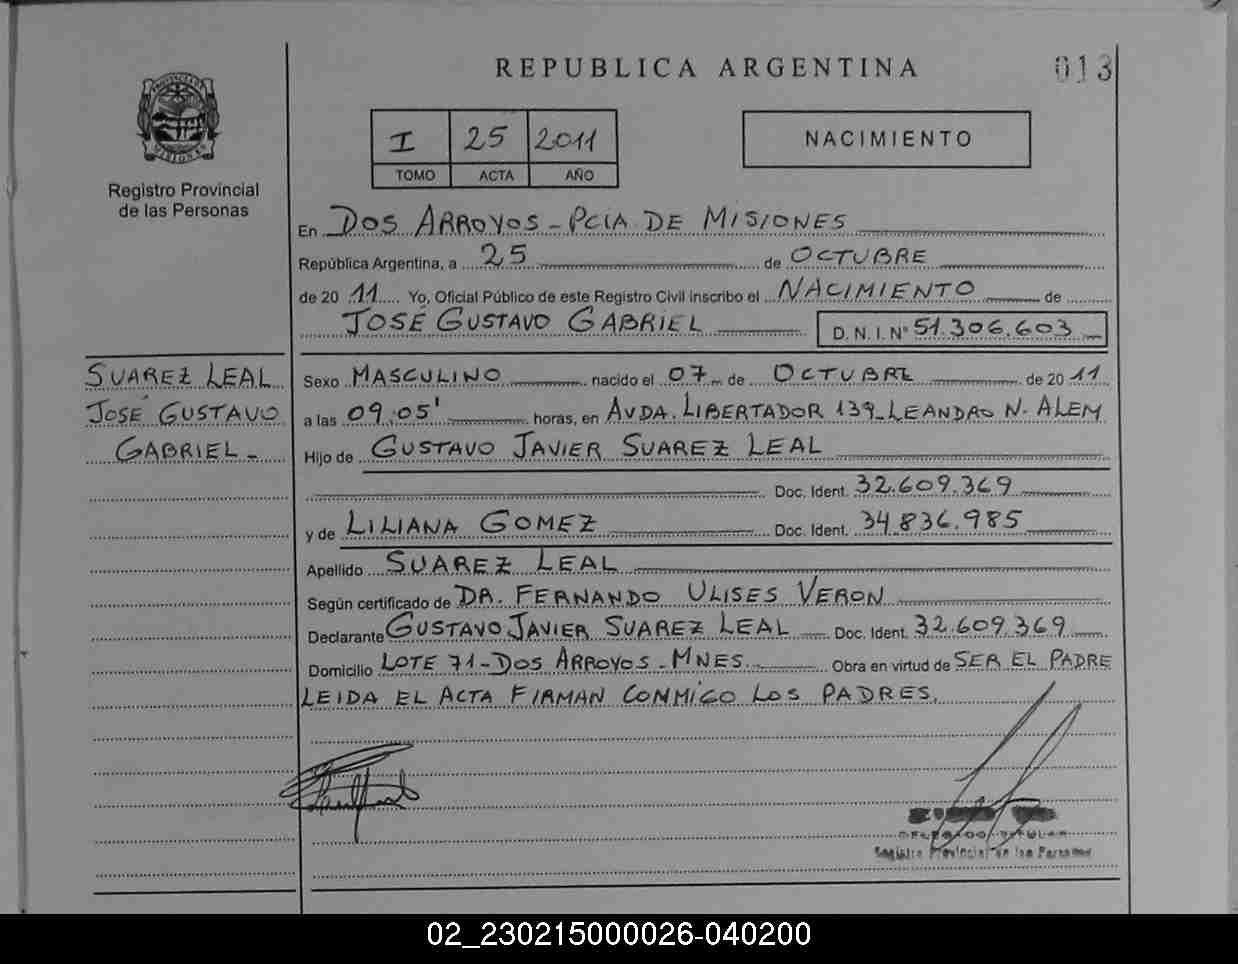 REPUBLICA ARGENTINA
013
PROVINCIA DE MISIONES
Registro Provincial
de las Personas
I 25 2011
TOMO ACTA AÑO
NACIMIENTO
En DOS ARROYOS - PCIA DE MISIONES
República Argentina, a 25 de OCTUBRE
de 20 11 Yo, Oficial Público de este Registro Civil inscribo el NACIMIENTO de
JOSÉ GUSTAVO GABRIEL D. N. I. Nº 51.306.603
SUAREZ LEAL
JOSÉ GUSTAVO
GABRIEL -
Sexo MASCULINO nacido el 07 de OCTUBRE de 20 11
a las 09:05' horas, en AVDA. LIBERTADOR 139 - LEANDRO N. ALEM
Hijo de GUSTAVO JAVIER SUAREZ LEAL
Doc. Ident. 32.609.369
y de LILIANA GOMEZ Doc. Ident. 34.836.985
Apellido SUAREZ LEAL
Según certificado de DR. FERNANDO ULISES VERON
Declarante GUSTAVO JAVIER SUAREZ LEAL Doc. Ident. 32.609.369
Domicilio LOTE 71 - DOS ARROYOS - MNES. Obra en virtud de SER EL PADRE
LEIDA EL ACTA FIRMAN CONMIGO LOS PADRES.
Registro Provincial de las Personas
02_230215000026-040200